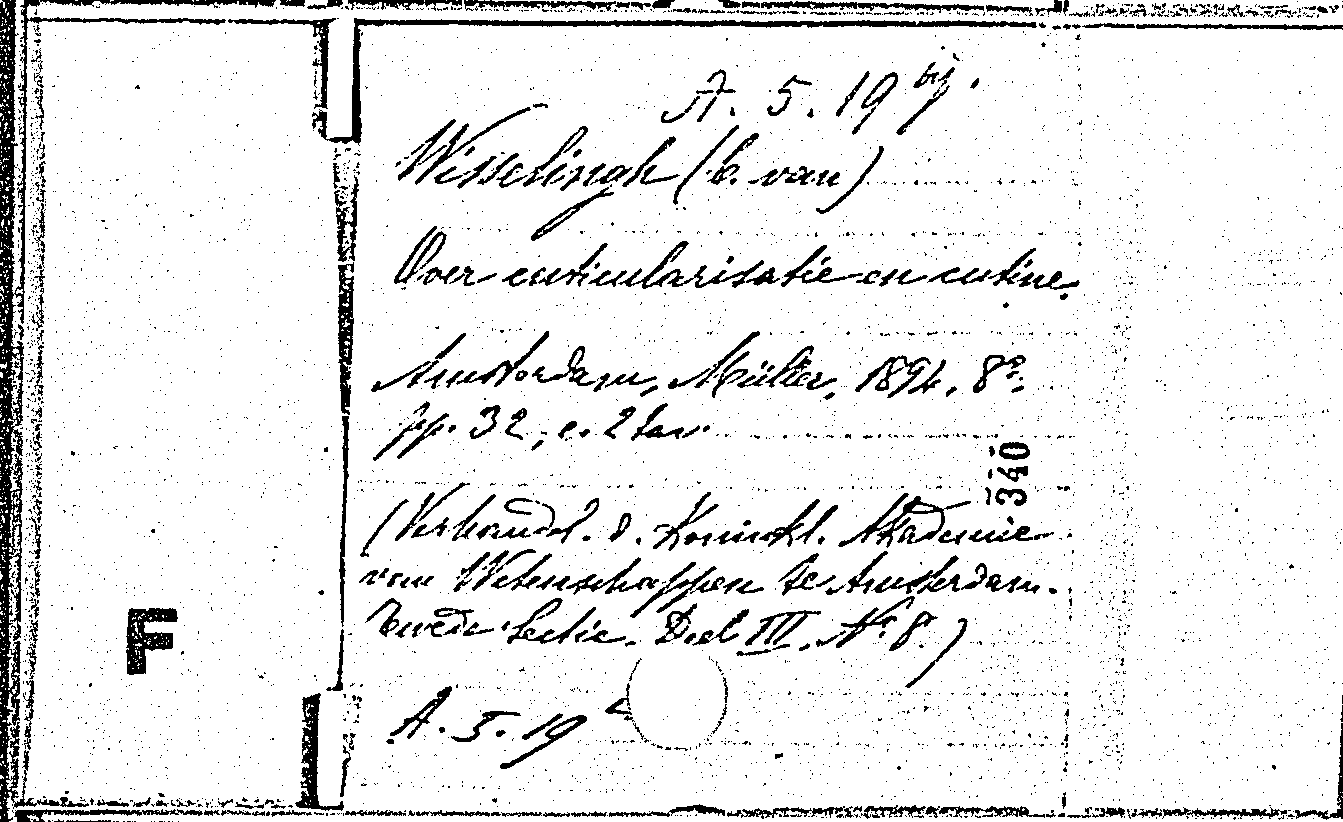 A. 5. 19 bij.
Wisselingh (C. van)
Over cuticularisatie en cutine.
Amsterdam, Müller, 1894. 8º.
pp. 32, c. 2 tav.
340
(Verhandel. d. Koninkl. Akademie
van Wetenschappen te Amsterdam.
Tweede Sectie. Deel III. Nº 8.)
F
A. 5. 19